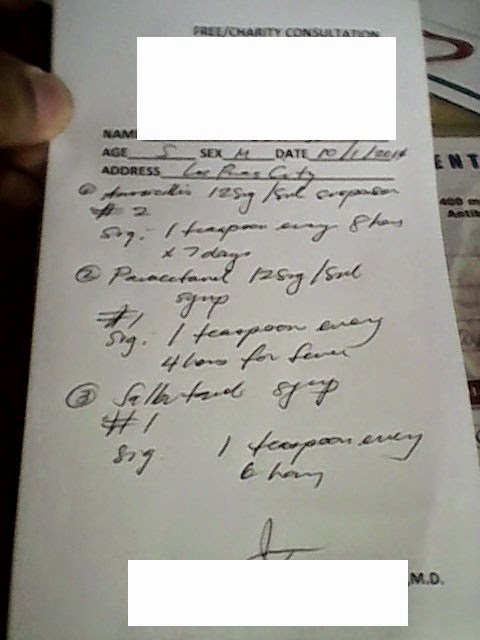 FREE/CHARITY CONSULTATION
NAME
AGE 5 SEX M DATE 10/1/2014
ADDRESS Las Pinas City
① Amoxicillin 125mg/5ml suspension
# 2
Sig: 1 teaspoon every 8 hours
x 7 days
② Paracetamol 125mg/5ml
syrup
#1
Sig. 1 teaspoon every
4 hours for fever
③ Salbutamol syrup
#1
Sig 1 teaspoon every
6 hours
,M.D.
ENT
400 m
Antib